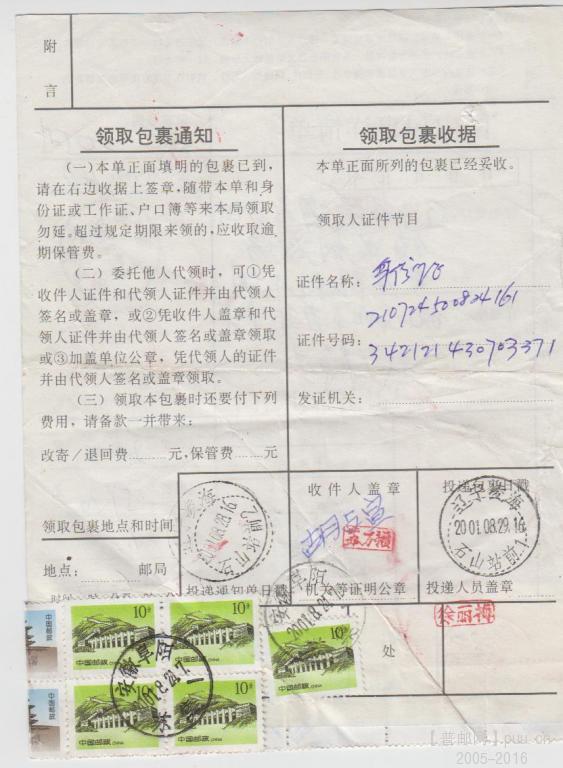 附言
领取包裹通知
(一)本单正面填明的包裹已到,
请在右边收据上签章,随带本单和身
份证或工作证、户口簿等来本局领取
勿延。超过规定期来领的,应收取逾
期保管费。
(二)委托他人代领时,可①凭
收件人证件和代领人证件并由代领人
签名或盖章,或②凭收件人盖章和代
领人证件并由代领人签名或盖章领取
或③加盖单位公章,凭代领人的证件
并由代领人签名或盖章领取。
(三)领取本包裹时还要付下列
费用,请备款一并带来:
改寄/退回费 元,保管费 元
领取包裹地点和时间
地点: 邮局
领取包裹收据
本单正面所列的包裹已经妥收。
领取人证件节目
证件名称:
210724500824161
证件号码:
342121430703371
发证机关:
收件人盖章
投递包裹日戳
辽宁凌海
2001.08.29.16
石山站前1
投递通知单日戳
机关等证明公章
投递人员盖章
徐丽梅
处
10分
10分
10分
10分
10分
中国邮政 CHINA
中国邮政 CHINA
中国邮政 CHINA
中国邮政
中国邮政
安徽阜阳
2001.8.2
【普邮网】puu.cn
2005-2016